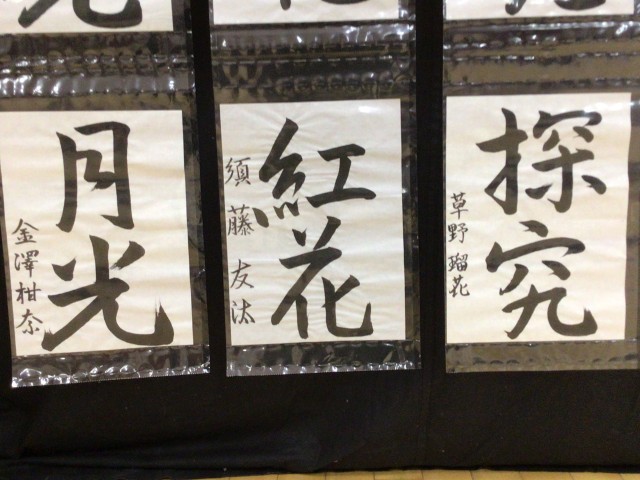 月光
金澤柑奈
紅花
須藤友汰
探究
草野瑠花